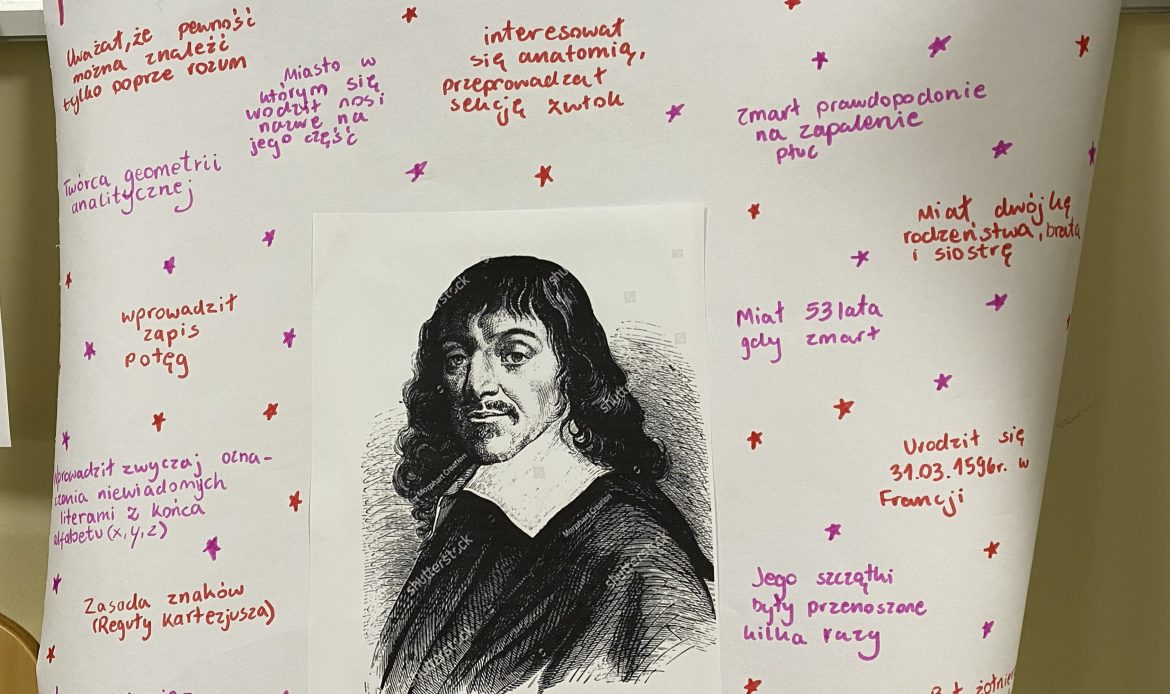 Uważał, że pewność
można znaleźć
tylko poprze rozum
Miasto w
którym się
wodził nosi
nazwę na
jego część
interesował
się anatomią,
przeprowadzał
sekcję zwłok
zmarł prawdopodonie
na zapalenie
płuc
Twórca geometrii
analitycznej
Miał dwójkę
rodzeństwa, brata
i siostrę
wprowadził
zapis
potęg
Miał 53 lata
gdy zmarł
wprowadził zwyczaj ozna-
czania niewiadomych
literami z końca
alfabetu (x, y, z)
Urodził się
31.03.1596r. w
Francji
Zasada znaków
(Reguły Kartezjusza)
Jego szczątki
były przenoszone
kilka razy
shutterstock
shutterstock
shutterstock
shutterstock
Morphart Creation
Morphart Creation